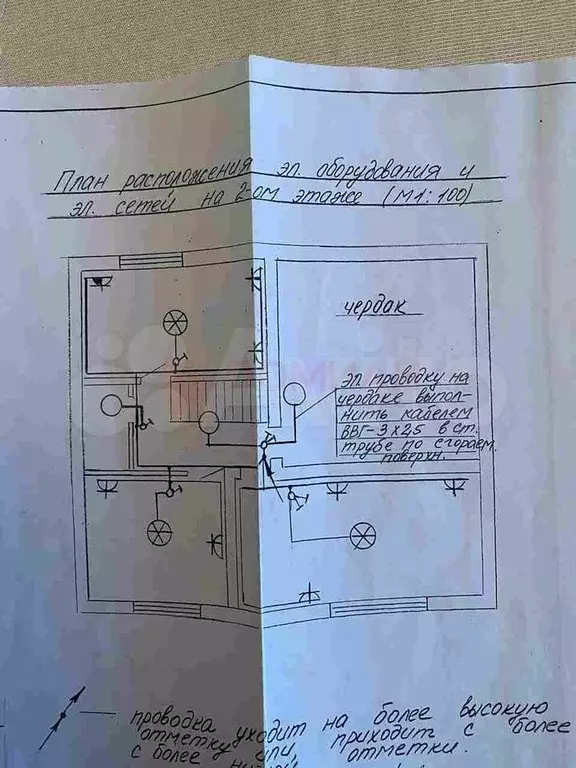 План расположения эл. оборудования и
эл. сетей на 2-ом этаже (М1:100)
чердак
эл. проводку на
чердаке выпол-
нить кайелем
ВВГ-3х2,5 в ст.
трубе по сгораем.
поверхн.
проводка уходит на более высокую
отметку или приходит с более
с более отметки.